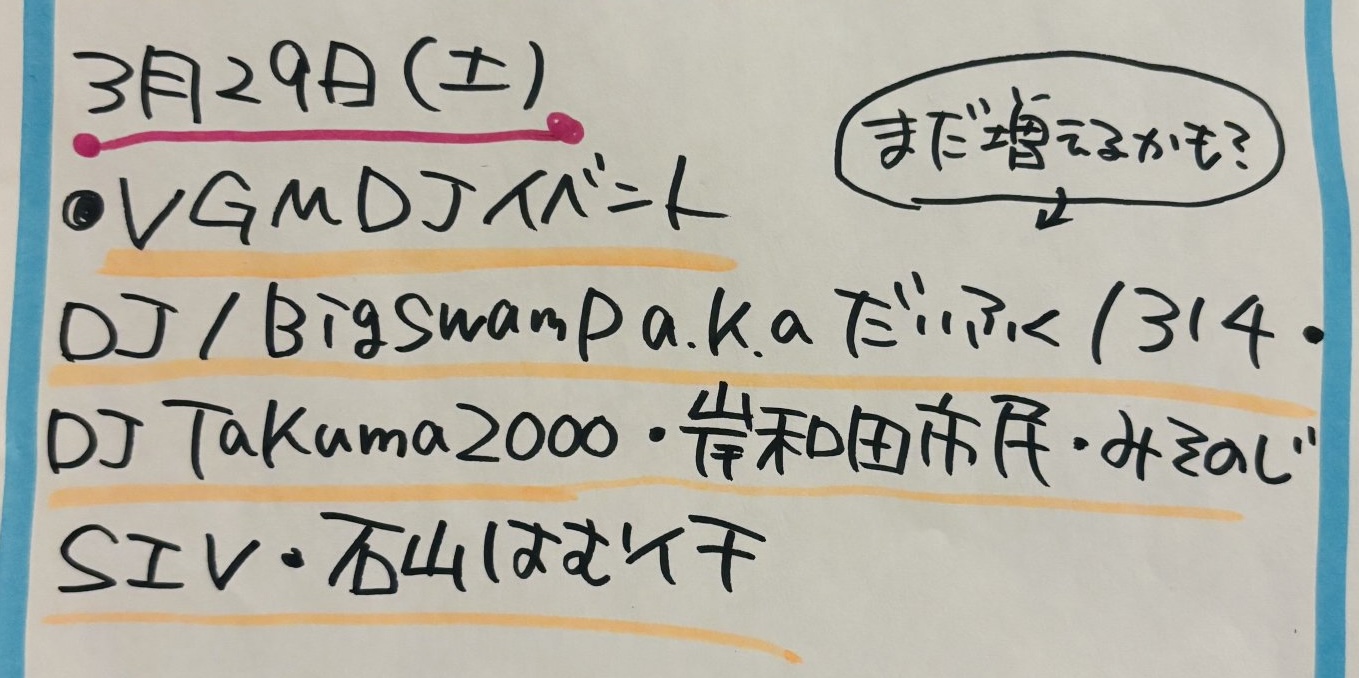 3月29日(土)
まだ増えるかも?
●VGMDJイベント
DJ/BigSwamp a.k.a だいふく/314・
DJ TaKuma2000・岸和田市民・みそのじ
SIV・石山はむイチ